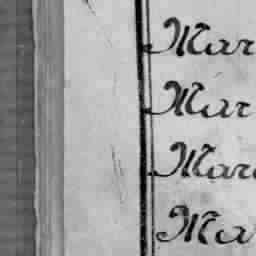 Mar
Mar
Mar
Ma